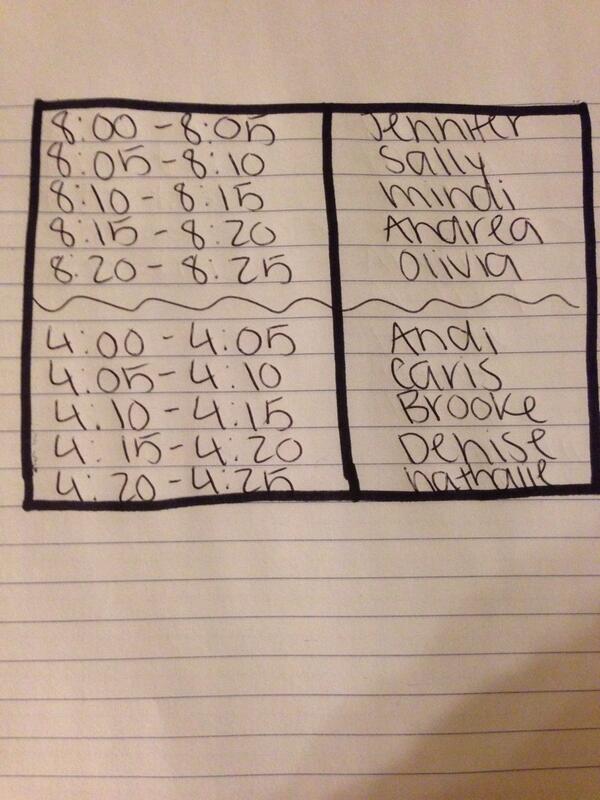 8:00 - 8:05 Jennifer
8:05 - 8:10 Sally
8:10 - 8:15 mindi
8:15 - 8:20 Andrea
8:20 - 8:25 Olivia
4:00 - 4:05 Andi
4:05 - 4:10 Caris
4:10 - 4:15 Brooke
4:15 - 4:20 Denise
4:20 - 4:25 nathalie